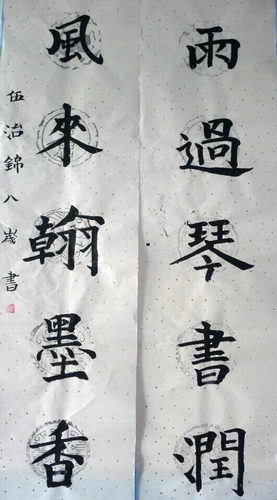 雨過琴書潤
風來翰墨香
伍治錦八歲書